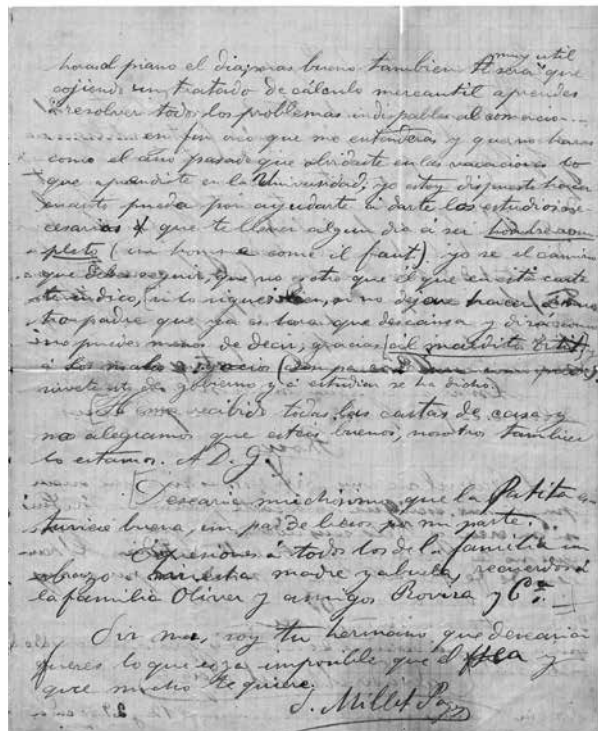 muy util
hora al piano el dia, seras bueno tambien te sera que
cojiendo un tratado de cálculo mercantil aprendes
á resolver todos los problemas al comercio
en fin creo que me entenderas y que no haras
como el año pasado que olvidaste en las vacaciones lo
que aprendiste en la Universidad; yo estoy dispuesto hacer
cuanto pueda por ayudarte á darte los estudios ne-
cesarios y que te lleven algun dia á ser hombre com-
pleto (un homme come il faut) yo se el camino
que debes seguir, que no es otro que el que en esta carta
te indico, si lo sigues bien, si no dejare hacer á
tro padre que ya es hora que descansa y dirá
no puedo menos de decir, gracias al maldito
á los malos negocios
del gobierno y á estudiar se ha dicho.
He recibido todas las cartas de casa y
nos alegramos que esteis buenos, nosotros tambien
lo estamos. A. D. G.
Desearia muchisimo que la Patita es-
tuviese buena, un par de besos por mi parte.
Expresiones á todos los de la familia un
abrazo á nuestra madre y abuela, recuerdos á
la familia Oliver y amigos Rovira y Cª.
Sin mas, soy tu hermano que desearia
fueres lo que es imposible que el sea y
que mucho te quiere.
S. Millet Pagés